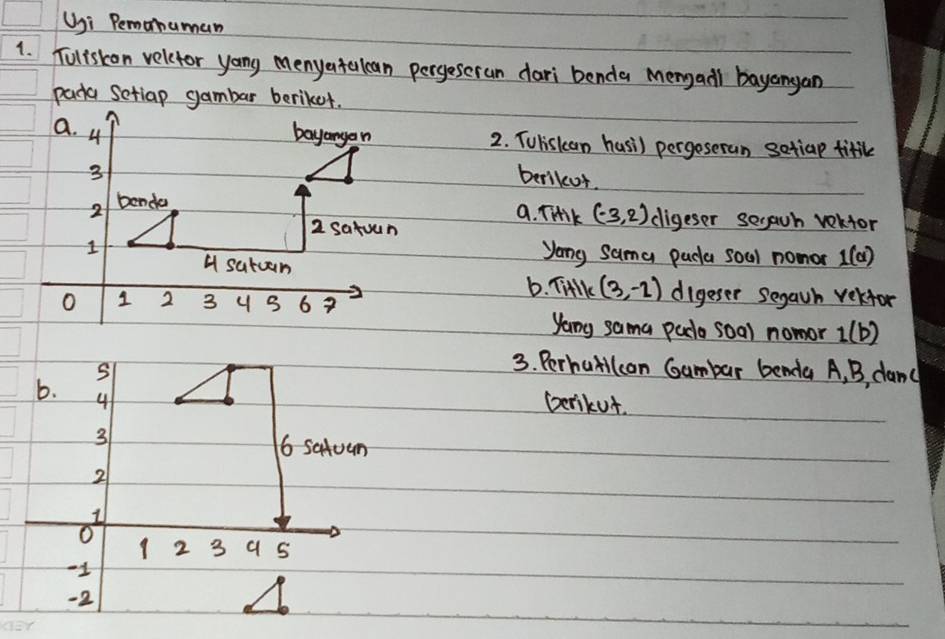 Uji Pemahaman
1. Tuliskan vektor yang menyatakan pergeseran dari benda menjadi bayangan
pada setiap gambar berikut.
a.
4
3
2
1
bayangan
benda
2 satuan
4 satuan
0 1 2 3 4 5 6 7
b.
5
4
3
2
1
0
6 satuan
1 2 3 4 5
-1
-2
2. Tuliskan hasil pergeseran setiap titik
berikut.
a. Titik (-3,2) digeser sejauh vektor
yang sama pada soal nomor 1(a)
b. Titik (3,-2) digeser sejauh vektor
yang sama pada soal nomor 1(b)
3. Perhatikan Gambar benda A, B, dan C
berikut.